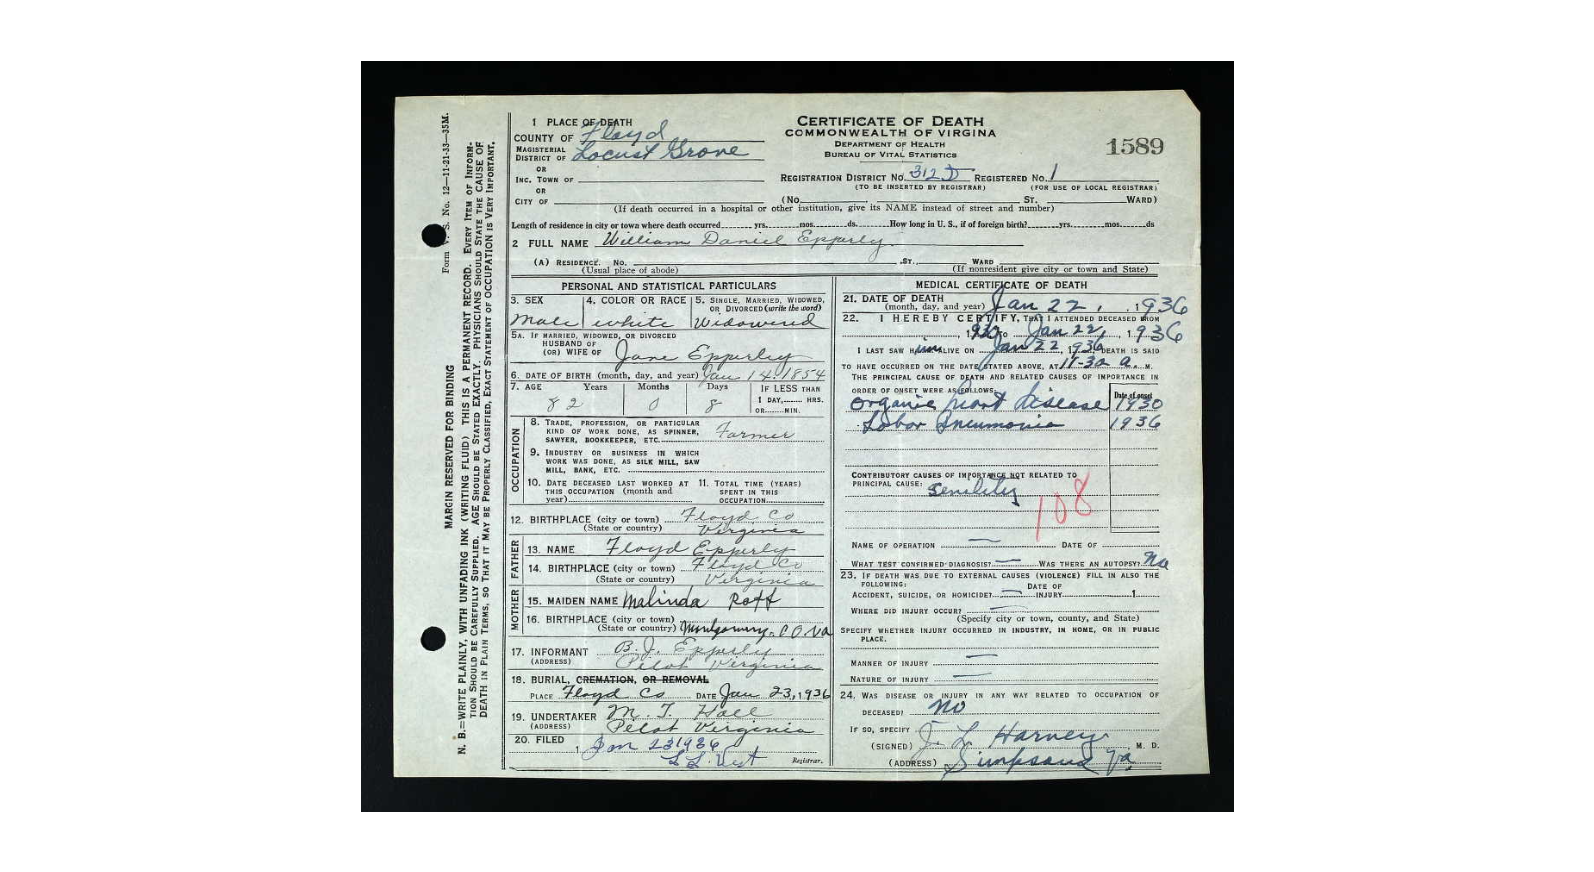 Form V. S. No. 12—11-21-33—35M.
MARGIN RESERVED FOR BINDING
N. B.—WRITE PLAINLY, WITH UNFADING INK (WRITING FLUID) THIS IS A PERMANENT RECORD. EVERY ITEM OF INFORM-
TION SHOULD BE CAREFULLY SUPPLIED. AGE SHOULD BE STATED EXACTLY PHYSICIANS SHOULD STATE THE CAUSE OF
DEATH IN PLAIN TERMS, SO THAT IT MAY BE PROPERLY CLASSIFIED, EXACT STATEMENT OF OCCUPATION IS VERY IMPORTANT,
1 PLACE OF DEATH
COUNTY OF Floyd
MAGISTERIAL DISTRICT OF Locust Grove
OR
INC. TOWN OF
OR
CITY OF
CERTIFICATE OF DEATH
COMMONWEALTH OF VIRGINA
DEPARTMENT OF HEALTH
BUREAU OF VITAL STATISTICS
1589
REGISTRATION DISTRICT NO. 312 D REGISTERED NO. 1
(TO BE INSERTED BY REGISTRAR) (FOR USE OF LOCAL REGISTRAR)
(No. ST. WARD)
(If death occurred in a hospital or other institution, give its NAME instead of street and number)
Length of residence in city or town where death occurred yrs. mos. ds. How long in U. S., if of foreign birth? yrs. mos. ds
2 FULL NAME William Daniel Epperly
(A) RESIDENCE. No. ST. WARD
(Usual place of abode) (If nonresident give city or town and State)
PERSONAL AND STATISTICAL PARTICULARS
3. SEX 4. COLOR OR RACE 5. SINGLE, MARRIED, WIDOWED, OR DIVORCED (write the word)
Male white Widowered
5A. IF MARRIED, WIDOWED, OR DIVORCED
HUSBAND OF
(OR) WIFE OF Jane Epperley
6. DATE OF BIRTH (month, day, and year) Jan 14-1854
7. AGE Years Months Days IF LESS THAN
1 DAY, HRS.
OR MIN.
82 0 8
OCCUPATION
8. TRADE, PROFESSION, OR PARTICULAR
KIND OF WORK DONE, AS SPINNER,
SAWYER, BOOKKEEPER, ETC. Farmer
9. INDUSTRY OR BUSINESS IN WHICH
WORK WAS DONE, AS SILK MILL, SAW
MILL, BANK, ETC.
10. DATE DECEASED LAST WORKED AT
THIS OCCUPATION (month and
year)
11. TOTAL TIME (YEARS)
SPENT IN THIS
OCCUPATION
12. BIRTHPLACE (city or town) Floyd Co
(State or country) Virginia
FATHER
13. NAME Floyd Epperly
14. BIRTHPLACE (city or town) Floyd Co
(State or country) Virginia
MOTHER
15. MAIDEN NAME Malinda
16. BIRTHPLACE (city or town)
(State or country) Montgomery. CO. Va
17. INFORMANT B. J. Epperly
(ADDRESS) Pilot Virginia
18. BURIAL, CREMATION, OR REMOVAL
PLACE Floyd Co DATE Jan 23, 1936
19. UNDERTAKER M. T. Hall
(ADDRESS) Pilot Virginia
20. FILED Jan 23 1936
L. L. Vest
Registrar.
MEDICAL CERTIFICATE OF DEATH
21. DATE OF DEATH
(month, day, and year) Jan 22, 1936
22. I HEREBY CERTIFY, THAT I ATTENDED DECEASED FROM
TO Jan 22, 1936
I LAST SAW him ALIVE ON Jan 22, 1936, DEATH IS SAID
TO HAVE OCCURRED ON THE DATE STATED ABOVE, AT 11-30 a. M.
THE PRINCIPAL CAUSE OF DEATH AND RELATED CAUSES OF IMPORTANCE IN
ORDER OF ONSET WERE AS FOLLOWS:
Date of onset
organic heart Disease 1930
Lobar Pneumonia 1936
CONTRIBUTORY CAUSES OF IMPORTANCE NOT RELATED TO
PRINCIPAL CAUSE:
senility
108
NAME OF OPERATION — DATE OF
WHAT TEST CONFIRMED DIAGNOSIS? — WAS THERE AN AUTOPSY? No
23. IF DEATH WAS DUE TO EXTERNAL CAUSES (VIOLENCE) FILL IN ALSO THE
FOLLOWING:
ACCIDENT, SUICIDE, OR HOMICIDE? — DATE OF INJURY 1
WHERE DID INJURY OCCUR? —
(Specify city or town, county, and State)
SPECIFY WHETHER INJURY OCCURRED IN INDUSTRY, IN HOME, OR IN PUBLIC
PLACE.
MANNER OF INJURY —
NATURE OF INJURY —
24. WAS DISEASE OR INJURY IN ANY WAY RELATED TO OCCUPATION OF
DECEASED? No
IF SO, SPECIFY
(SIGNED) J. L. Harvey, M. D.
(ADDRESS) Simpsons Va.